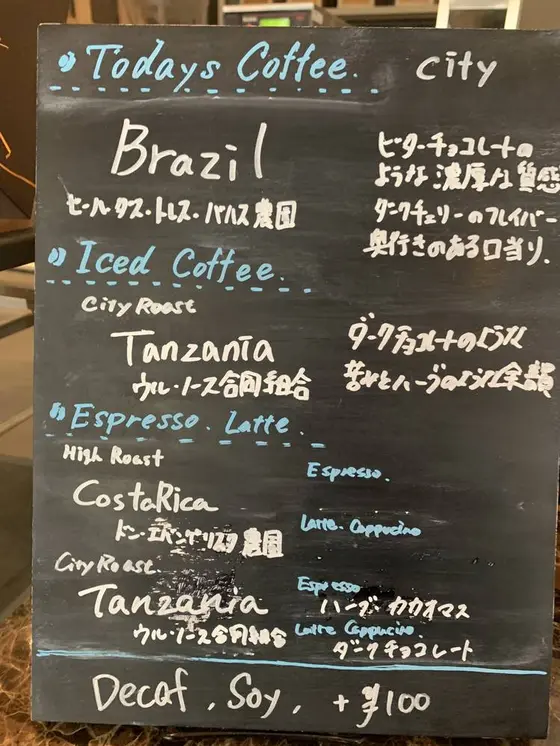 Todays Coffee. City
Brazil
セーハ・ダス・トレス・バハス農園
ビターチョコレートの
ような濃厚な質感
ダークチェリーのフレイバー
奥行きのある口当り.
Iced Coffee.
City Roast
Tanzania
ウル・ノース合同組合
ダークチョコレートのような
苦みとハーブのような余韻
Espresso. Latte.
High Roast
CostaRica
ドン・エバンゲリスタ農園
Espresso.
Latte. Cappucino
City Roast.
Tanzania
ウル・ノース合同組合
Espresso
ハーブ・カカオマス
Latte Cappucino.
ダークチョコレート
Decaf, Soy, +¥100